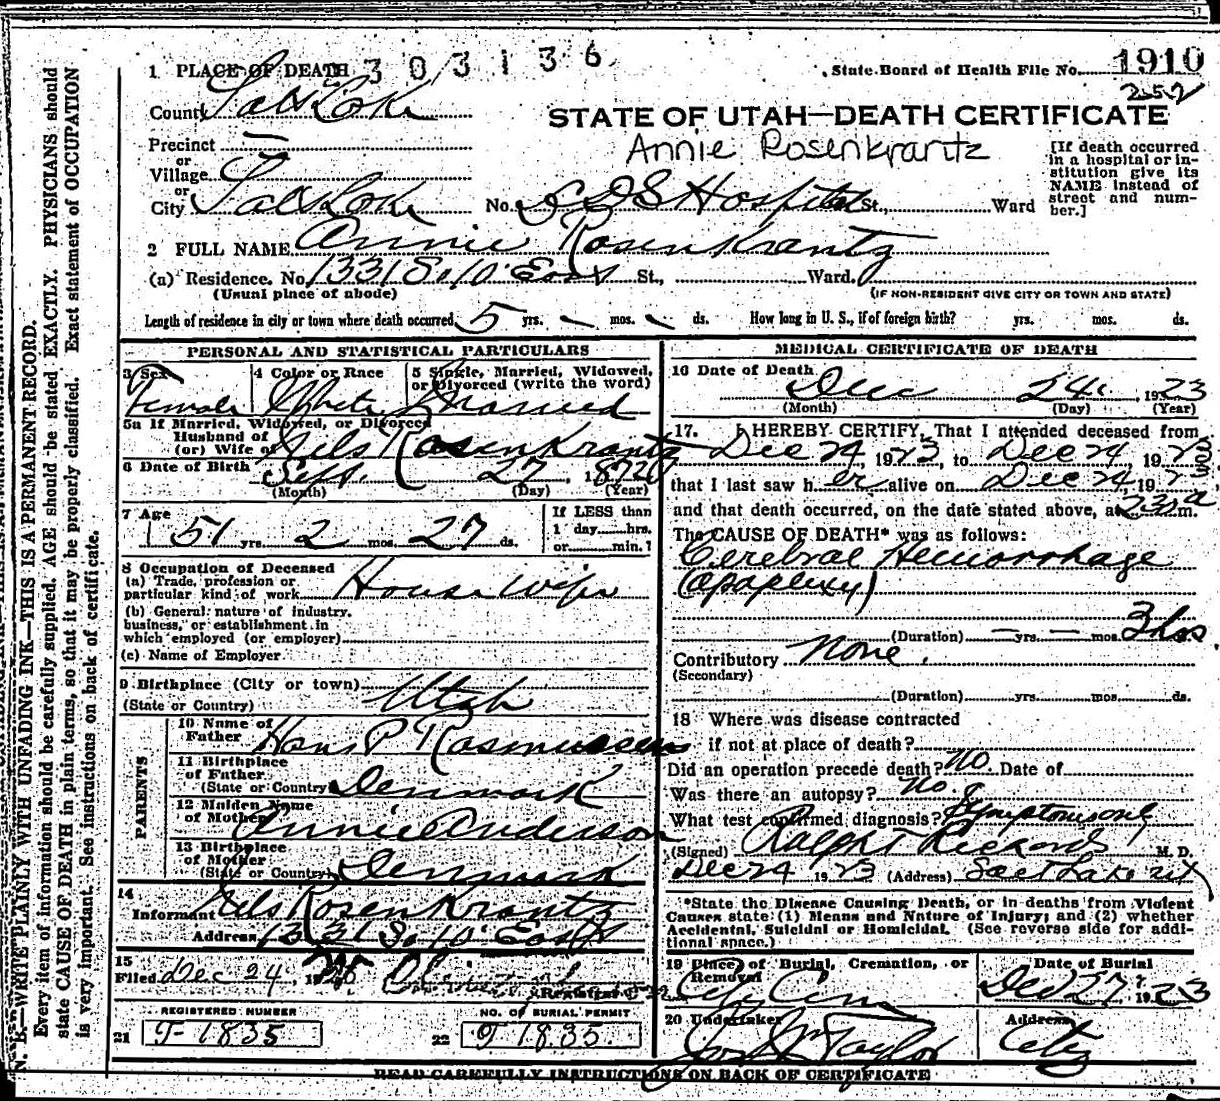 303136
1 PLACE OF DEATH
State Board of Health File No. 1910
252
County Salt Lake
STATE OF UTAH—DEATH CERTIFICATE
Precinct
Annie Rosenkrantz
[If death occurred in a hospital or institution give its NAME instead of street and number.]
or
Village
or
City Salt Lake No. L D S Hospital St., Ward
2 FULL NAME Annie Rosenkrantz
(a) Residence. No. 1331 So 10' East St., Ward.
(Usual place of abode) (IF NON-RESIDENT GIVE CITY OR TOWN AND STATE)
Length of residence in city or town where death occurred 5 yrs. — mos. — ds. How long in U. S., if of foreign birth? yrs. mos. ds.
PERSONAL AND STATISTICAL PARTICULARS
3 Sex 4 Color or Race 5 Single, Married, Widowed, or Divorced (write the word)
Female White Married
5a If Married, Widowed, or Divorced
Husband of
(or) Wife of Nels Rosenkrantz
6 Date of Birth Sept. 27, 1872
(Month) (Day) (Year)
7 Age 51 yrs. 2 mos. 27 ds.
If LESS than
1 day hrs.
or min.?
8 Occupation of Deceased
(a) Trade, profession or
particular kind of work House wife
(b) General nature of industry,
business, or establishment in
which employed (or employer)
(c) Name of Employer
9 Birthplace (City or town)
(State or Country) Utah
PARENTS
10 Name of
Father Hans P Rasmussen
11 Birthplace
of Father
(State or Country) Denmark
12 Maiden Name
of Mother Annie Anderson
13 Birthplace
of Mother
(State or Country) Denmark
14
Informant Nels Rosenkrantz
Address 1331 So 10' East
15
Filed Dec 24, 19
Registrar
REGISTERED NUMBER
21 T-1835
NO. OF BURIAL PERMIT
22 T 1835
MEDICAL CERTIFICATE OF DEATH
16 Date of Death
Dec 24, 1923
(Month) (Day) (Year)
17. I HEREBY CERTIFY, That I attended deceased from
Dec 24 1923, to Dec 24 1923
that I last saw her alive on Dec 24, 1923,
and that death occurred, on the date stated above, at m.
The CAUSE OF DEATH* was as follows:
Cerebral Hemorrhage
(apoplexy)
(Duration) — yrs. — mos. 3 hrs
Contributory None.
(Secondary)
(Duration) yrs. mos. ds.
18 Where was disease contracted
if not at place of death?
Did an operation precede death? No. Date of
Was there an autopsy? No.
What test confirmed diagnosis? Symptoms only
(Signed) Ralph T Richards, M. D.
Dec 24 1923 (Address) Salt Lake
*State the Disease Causing Death, or in deaths from Violent
Causes state (1) Means and Nature of Injury; and (2) whether
Accidental, Suicidal or Homicidal. (See reverse side for addi-
tional space.)
19 Place of Burial, Cremation, or Removal Date of Burial
City Cem Dec 27, 1923
20 Undertaker Address
Taylor City
READ CAREFULLY INSTRUCTIONS ON BACK OF CERTIFICATE
N. B.—WRITE PLAINLY WITH UNFADING INK—THIS IS A PERMANENT RECORD.
Every item of information should be carefully supplied. AGE should be stated EXACTLY. PHYSICIANS should
state CAUSE OF DEATH in plain terms, so that it may be properly classified. Exact statement of OCCUPATION
is very important. See instructions on back of certificate.